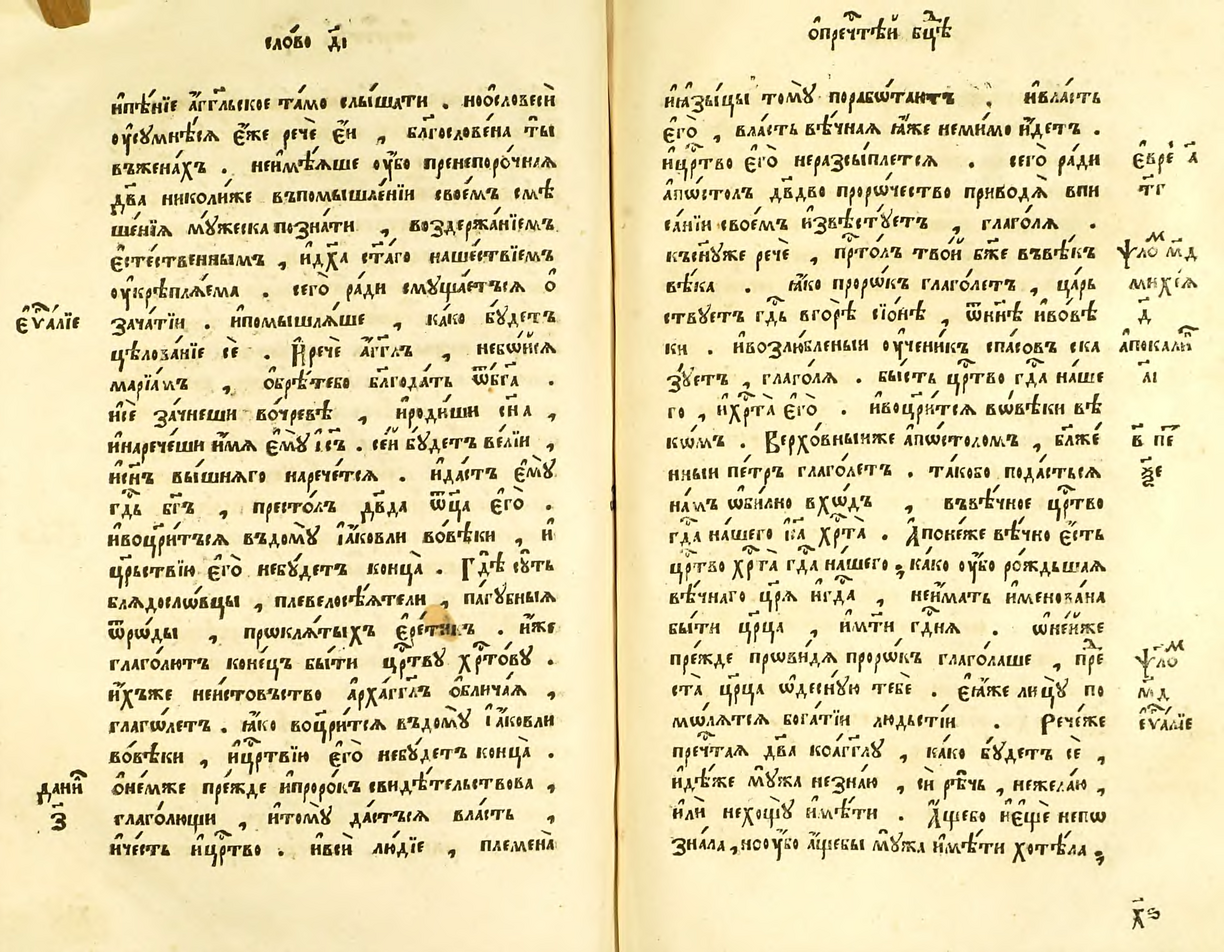 сло́во д҃і
ѝпѣ́нїе а҆́гг҃льское та́мо слы́шати . ноѡ҆словесѝ
ᲂу҆сꙋмнѣ́сѧ є҆́же речѐ є҆́й , бл҃гослове́на ты̀
въжена́хъ . неимѣ́ѧше ᲂу҆́бо пренепоро́чнаѧ
дв҃а николи́же въпомышле́нїи свое́мъ смѣ
ше́нїѧ мꙋ́жеска позна́ти , воздержа́нїемъ
є҆сте́ственнымъ , и҆дх҃а ст҃а́го наше́ствїемъ
ᲂу҆крѣплѧ́ема . сего̀ ра́ди смꙋща́етъсѧ ѻ҆
є҆ѵⷢ҇а́лїе
зача́тїи . и҆помышлѧ́ше , ка́ко бꙋ́детъ
цѣлова́нїе сѐ . И҆речѐ а҆́гг҃лъ , небѡ́исѧ
марїа́мъ , ѻ҆брѣ́тебо бл҃года́ть ѿбг҃а .
и҆сѐ зачне́ши во́чревѣ , и҆роди́ши сн҃а ,
и҆нарече́ши и҆́мѧ є҆мꙋ̀ і҆с҃ъ . се́й бꙋ́детъ ве́лїи ,
и҆сн҃ъ вы́шнѧго нарече́тсѧ . и҆да́стъ є҆мꙋ̀
гд҃ь бг҃ъ , престо́лъ дв҃да ѿц҃а є҆го̀ .
и҆воцр҃и́тъсѧ въдомꙋ̀ і҆а́ковли во́вѣки , и҆
црⷭ҇твїю є҆го̀ небꙋ́детъ конца̀ . Гдѣ̀ сꙋ́ть
блѧдосло́вцы , плевелосѣ́ѧтели , па́гꙋбныѧ
ѿро́ды , проклѧ́тыхъ є҆рети́къ . и҆́же
глаго́лютъ коне́цъ бы́ти црⷭ҇твꙋ хрⷭ҇то́вꙋ .
и҆́хъже неи́стовъство а҆рха́гг҃лъ ѻ҆блича́ѧ ,
глаго́летъ . ꙗ҆́ко воцр҃и́тсѧ въдомꙋ̀ і҆а́ковли
во́вѣки , и҆црⷭ҇твїю є҆го̀ небꙋ́детъ конца̀ .
дани҃
ѻ҆не́мже пре́жде и҆проро́къ свидѣ́тельствова ,
з҃
глаго́лющи , и҆томꙋ̀ да́стъсѧ вла́сть ,
и҆че́сть и҆црⷭ҇тво . и҆всѝ лю́дїе , племена̀
ѻ҆пречⷭ҇тѣй бцⷣѣ
и҆ꙗ҆зы́цы томꙋ̀ порабѡ́таютъ , и҆вла́сть
є҆го̀ , вла́сть вѣ́чнаѧ ꙗ҆́же неми́мо и҆́детъ .
и҆црⷭ҇тво є҆го̀ неразсы́плетсѧ . сего̀ ра́ди
є҆вре́ а҃
а҆по́столъ дв҃дво проро́чество приводѧ̀ впи
т҃г
са́нїи свое́мъ и҆звѣ́стꙋетъ , глаго́лѧ .
къснꙋ́же речѐ , прⷭ҇то́лъ тво́й бж҃е въвѣ́къ
ѱало́ м҃д
вѣ́ка . ꙗ҆́ко проро́къ глаго́летъ , ца́рь
михе́ѧ
ствꙋетъ гдⷭ҇ь вгорѣ̀ сїо́нѣ , ѿнн҃ѣ и҆вовѣ́
д҃
ки . и҆возлю́бленыи ᲂу҆чени́къ спа́совъ ска
а҆пока́ли
зꙋ́етъ , глаго́лѧ . бы́сть црⷭ҇тво гдⷭ҇а на́ше
а҃і
го , и҆хрⷭ҇та̀ є҆го̀ . и҆воцр҃и́тсѧ вѡ́вѣки вѣ̀
кѡ́мъ . Верхо́вныиже а҆по́столомъ , бл҃же́
в҃ пе́
нныи пе́тръ глаго́летъ . та́кобо пода́стьсѧ
ѯ҃е
на́мъ ѡ҆би́лно вхо́дъ , въвѣ́чное црⷭ҇тво
гдⷭ҇а на́шего і҆с҃а хрⷭ҇та̀ . А҆поне́же вѣ́чно є҆́сть
црⷭ҇тво хрⷭ҇та̀ гдⷭ҇а на́шего , ка́ко ᲂу҆́бо ро́ждьшаѧ
вѣ́чнаго цр҃ѧ̀ и҆гдⷭ҇а , неи́мать и҆менова́на
бы́ти цр҃ца , и҆мт҃и гдⷭ҇нѧ . ѡ҆не́йже
пре́жде прови́дѧ проро́къ глаго́лаше , прⷣе
ѱало́
ста̀ цр҃ца ѡ҆деснꙋ́ю тебѐ . є҆ѧ́же лицꙋ̀ по
м҃д
мо́лѧтсѧ бога́тїи лю́дьстїи . Рече́же
є҆ѵⷢ҇а́лїе
пречⷭ҇таѧ дв҃а коа́гг҃лꙋ , ка́ко бꙋ́детъ сѐ ,
и҆дѣ́же мꙋ́жа незна́ю , сѝ рѣ́чь , нежела́ю ,
и҆лѝ нехощꙋ̀ и҆мѣ́ти . А҆́щебо и҆є҆щѐ непо
зна́ла , но ᲂу҆́бо а҆́щебы мꙋ́жа и҆мѣ́ти хотѣ́ла ,
х҃ѕ